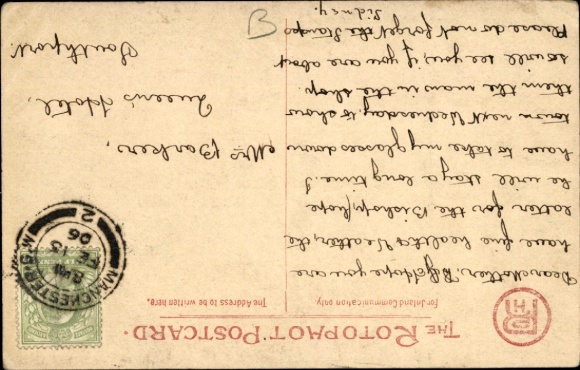 THE ROTOPHOT POSTCARD.
For Inland Communication only.
The Address to be written here.
Dear Mother, I hope you are
have fine healthy Weather, the
latter for the Bishop, hope
he will stay a long time. I
have to take my glasses down
town next Wednesday, to show
them the man in the shop.
so will see you, if you are about
Please do not forget the Stamps
Sidney.
Mrs Barker,
Queen's Hotel,
Southport.
MANCHESTER
8
FE 13
06
2
B
RPH